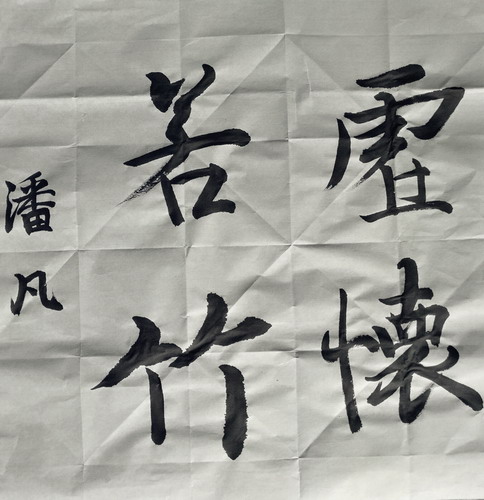 虚懷
若竹
潘凡